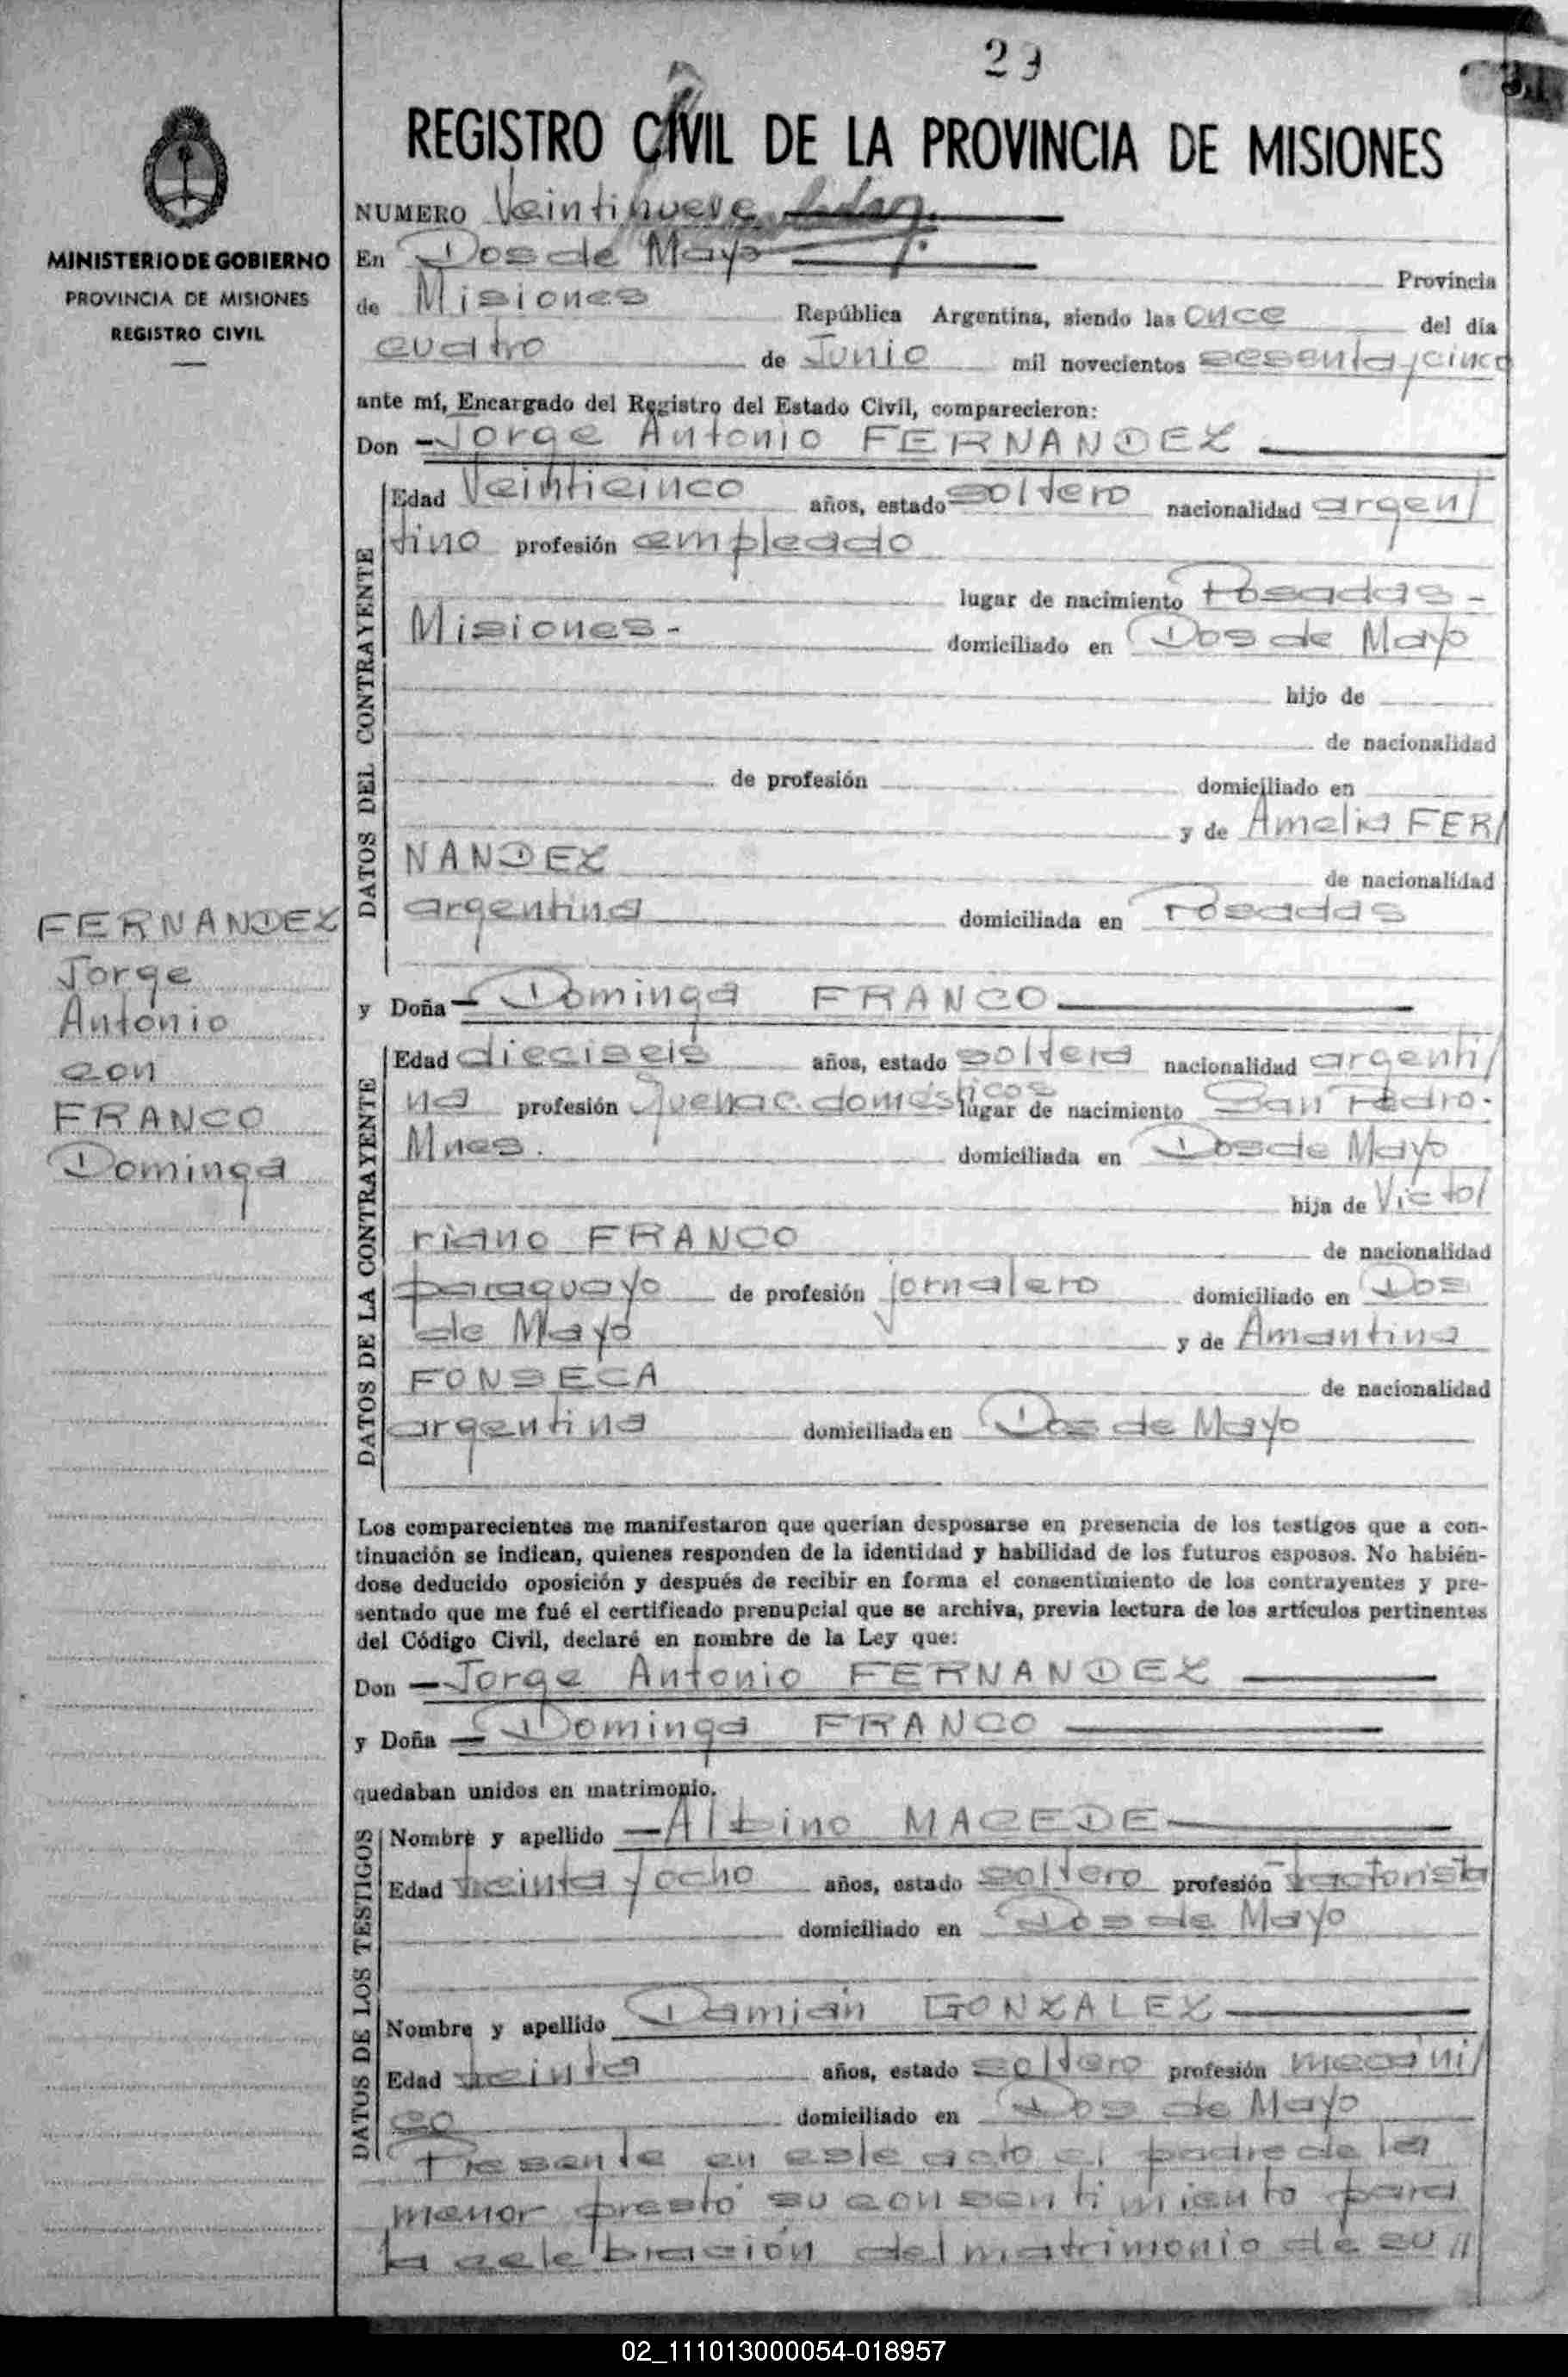 29
31
REGISTRO CIVIL DE LA PROVINCIA DE MISIONES
MINISTERIO DE GOBIERNO
PROVINCIA DE MISIONES
REGISTRO CIVIL
NUMERO Veintinueve
En Dos de Mayo Provincia
de Misiones República Argentina, siendo las once del día
cuatro de Junio mil novecientos sesenta y cinco
ante mí, Encargado del Registro del Estado Civil, comparecieron:
Don - Jorge Antonio FERNANDEZ
DATOS DEL CONTRAYENTE
Edad Veinticinco años, estado soltero nacionalidad argen/
tino profesión empleado
lugar de nacimiento Posadas -
Misiones - domiciliado en Dos de Mayo
hijo de
de nacionalidad
de profesión domiciliado en
y de Amelia FER/
NANDEZ de nacionalidad
argentina domiciliada en Posadas
FERNANDEZ
Jorge
Antonio
con
FRANCO
Dominga
y Doña - Dominga FRANCO
DATOS DE LA CONTRAYENTE
Edad dieciseis años, estado soltera nacionalidad argenti/
na profesión Quehac. domésticos lugar de nacimiento San Pedro -
Mnes. domiciliada en Dos de Mayo
hija de Victo/
riano FRANCO de nacionalidad
paraguayo de profesión jornalero domiciliado en Dos
de Mayo y de Amantina
FONSECA de nacionalidad
argentina domiciliada en Dos de Mayo
Los comparecientes me manifestaron que querían desposarse en presencia de los testigos que a con-
tinuación se indican, quienes responden de la identidad y habilidad de los futuros esposos. No habién-
dose deducido oposición y después de recibir en forma el consentimiento de los contrayentes y pre-
sentado que me fué el certificado prenupcial que se archiva, previa lectura de los artículos pertinentes
del Código Civil, declaré en nombre de la Ley que:
Don - Jorge Antonio FERNANDEZ
y Doña - Dominga FRANCO
quedaban unidos en matrimonio.
DATOS DE LOS TESTIGOS
Nombre y apellido - Albino MACEDE
Edad treinta y ocho años, estado soltero profesión tractorista
domiciliado en Dos de Mayo
Nombre y apellido Damián GONZALEZ
Edad treinta años, estado soltero profesión mecáni/
co domiciliado en Dos de Mayo
Presente en este acto el padre de la
menor prestó su consentimiento para
la celebración del matrimonio de su //
02_111013000054-018957